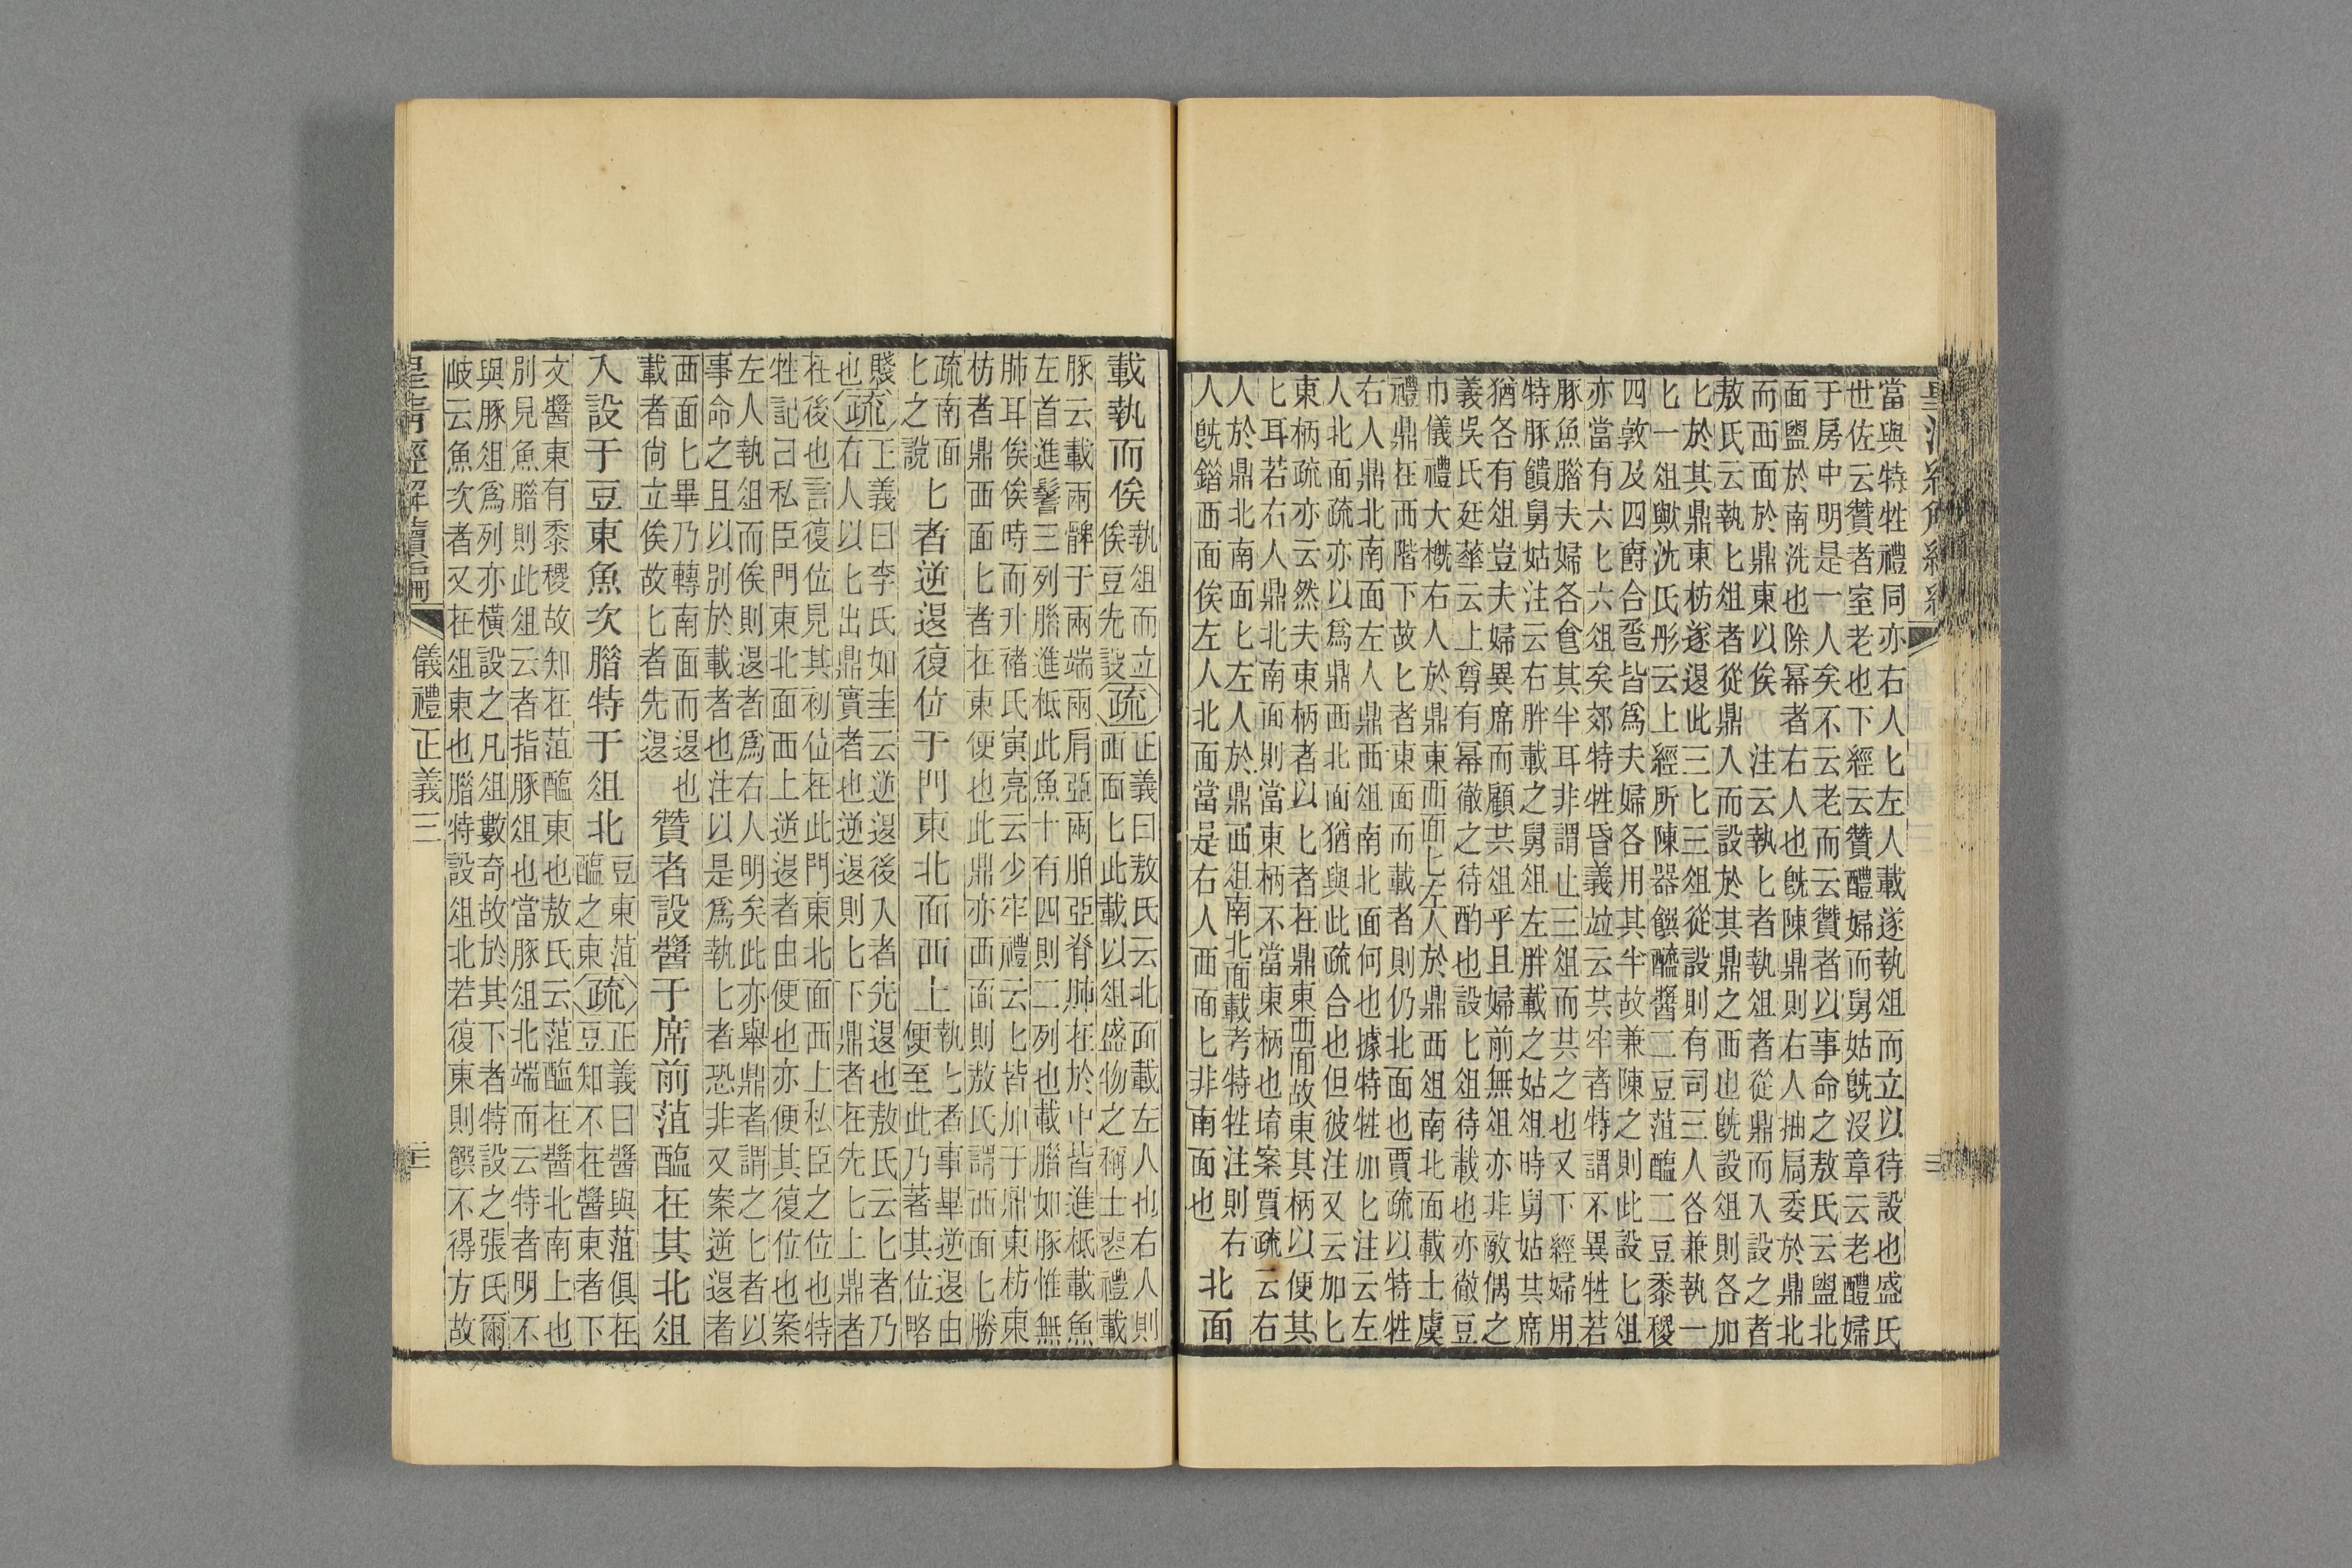 當與特牲禮同亦右人匕左人載遂執俎而立以待設也盛氏
世佐云贊者室老也下經云贊醴婦而舅姑旣沒章云老醴婦
于房中明是一人矣不云老而云贊者以事命之敖氏云盥北
面盥於南洗也除冪者右人也旣陳鼎則右人抽扃委於鼎北
而西面於鼎東以俟 注云執匕者執俎者從鼎而入設之者
敖氏云執匕俎者從鼎入而設於其鼎之西也旣設俎則各加
匕於其鼎東枋遂退此三匕三俎從設則有司三人各兼執一
匕一俎歟沈氏彤云上經所陳器饌醯醬二豆菹醢二豆黍稷
四敦及四爵合卺皆爲夫婦各用其半故兼陳之則此設匕俎
亦當有六匕六俎矣郊特牲昏義竝云共牢者特謂不異牲若
豚魚腊夫婦各㑹其半耳非謂止三俎而共之也又下經婦用
特豚饋舅姑注云右胖載之舅俎左胖載之姑俎時舅姑其席
猶各有俎豈夫婦異席而顧共俎乎且婦前無俎亦非敵偶之
義吳氏廷華云上尊有冪徹之待酌也設匕俎待載也亦徹豆
巾儀禮大槪右人於鼎東西面匕左人於鼎西俎南北面載士虞
禮鼎在西階下故匕者東面而載者則仍北面也賈疏以特牲
右人鼎北南面左人鼎西俎南北面何也據特牲加匕注云左
人北面疏亦以爲鼎西北面猶與此疏合也但彼注又云加匕
東柄疏亦云然夫東柄者以匕者在鼎東西面故東其柄以便其
匕耳若右人鼎北南面則當東柄不當東柄也堉案賈疏云右
人於鼎北南面匕左人於鼎西俎南北面載考特牲注則右
人旣錯西面俟左人北面當是右人西面匕非南面也
北面
載執而俟
執俎而立
俟豆先設
疏
正義曰敖氏云北面載左人也右人則
西面匕此載以俎盛物之稱士喪禮載
豚云載兩髀于兩端兩肩亞兩胉亞脊肺在於中皆進柢載魚
左首進鬐三列腊進柢此魚十有四則二列也載腊如豚惟無
肺耳俟俟時而升褚氏寅亮云少牢禮云匕皆加于鼎東枋東
枋者鼎西面匕者在東便也此鼎亦西面則敖氏謂西面匕勝
疏南面
匕之說
匕者逆退復位于門東北面西上
執匕者事畢逆退由
便至此乃著其位略
賤
也
疏
正義曰李氏如圭云逆退後入者先退也敖氏云匕者乃
右人以匕出鼎實者也逆退則匕下鼎者在先匕上鼎者
在後也言復位見其初位在此門東北面西上私臣之位也特
牲記曰私臣門東北面西上逆退者由便也亦便其復位也案
左人執俎而俟則退者爲右人明矣此亦舉鼎者謂之匕者以
事命之且以別於載者也注以是爲執匕者恐非又案逆退者
西面匕畢乃轉南面而退也
載者尙立俟故匕者先退
贊者設醬于席前菹醢在其北俎
入設于豆東魚次腊特于俎北
豆東菹
醢之東
疏
正義曰醬與菹俱在
豆知不在醬東者下
文醬東有黍稷故知在菹醢東也敖氏云菹醢在醬北南上也
別見魚腊則此俎云者指豚俎也當豚俎北端而云特者明不
與豚俎爲列亦橫設之凡俎數奇故於其下者特設之張氏爾
岐云魚次者又在俎東也腊特設俎北若復東則饌不得方故
皇淸經解續編
儀禮正義三